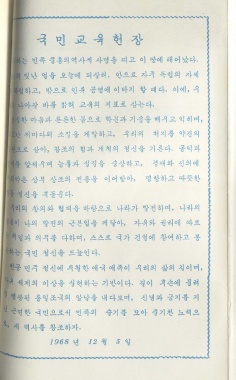 국민교육헌장
는 민족 중흥의 역사적 사명을 띠고 이 땅에 태어났다.
빛난 얼을 오늘에 되살려, 안으로 자주 독립의 자세
확립하고, 밖으로 인류 공영에 이바지할 때다. 이에, 우
나아갈 바를 밝혀 교육의 지표로 삼는다.
마음과 튼튼한 몸으로 학문과 기술을 배우고 익히며,
저마다의 소질을 계발하고, 우리의 처지를 약진의
으로 삼아, 창조의 힘과 개척의 정신을 기른다. 공익과
능률과 실질을 숭상하고, 경애와 신의에
상부 상조의 전통을 이어받아, 명랑하고 따뜻한
정신을 북돋운다.
우리의 창의와 협력을 바탕으로 나라가 발전하며, 나라의
나의 발전의 근본임을 깨달아, 자유와 권리에 따르
책임과 의무를 다하며, 스스로 국가 건설에 참여하고 봉
하는 국민 정신을 드높인다.
민주 정신에 투철한 애국 애족이 우리의 삶의 길이며,
세계의 이상을 실현하는 기반이다. 길이 후손에 물려
영광된 통일 조국의 앞날을 내다보며, 신념과 긍지를 지
근면한 국민으로서 민족의 슬기를 모아 줄기찬 노력으
, 새 역사를 창조하자.
1968 년 12 월 5 일